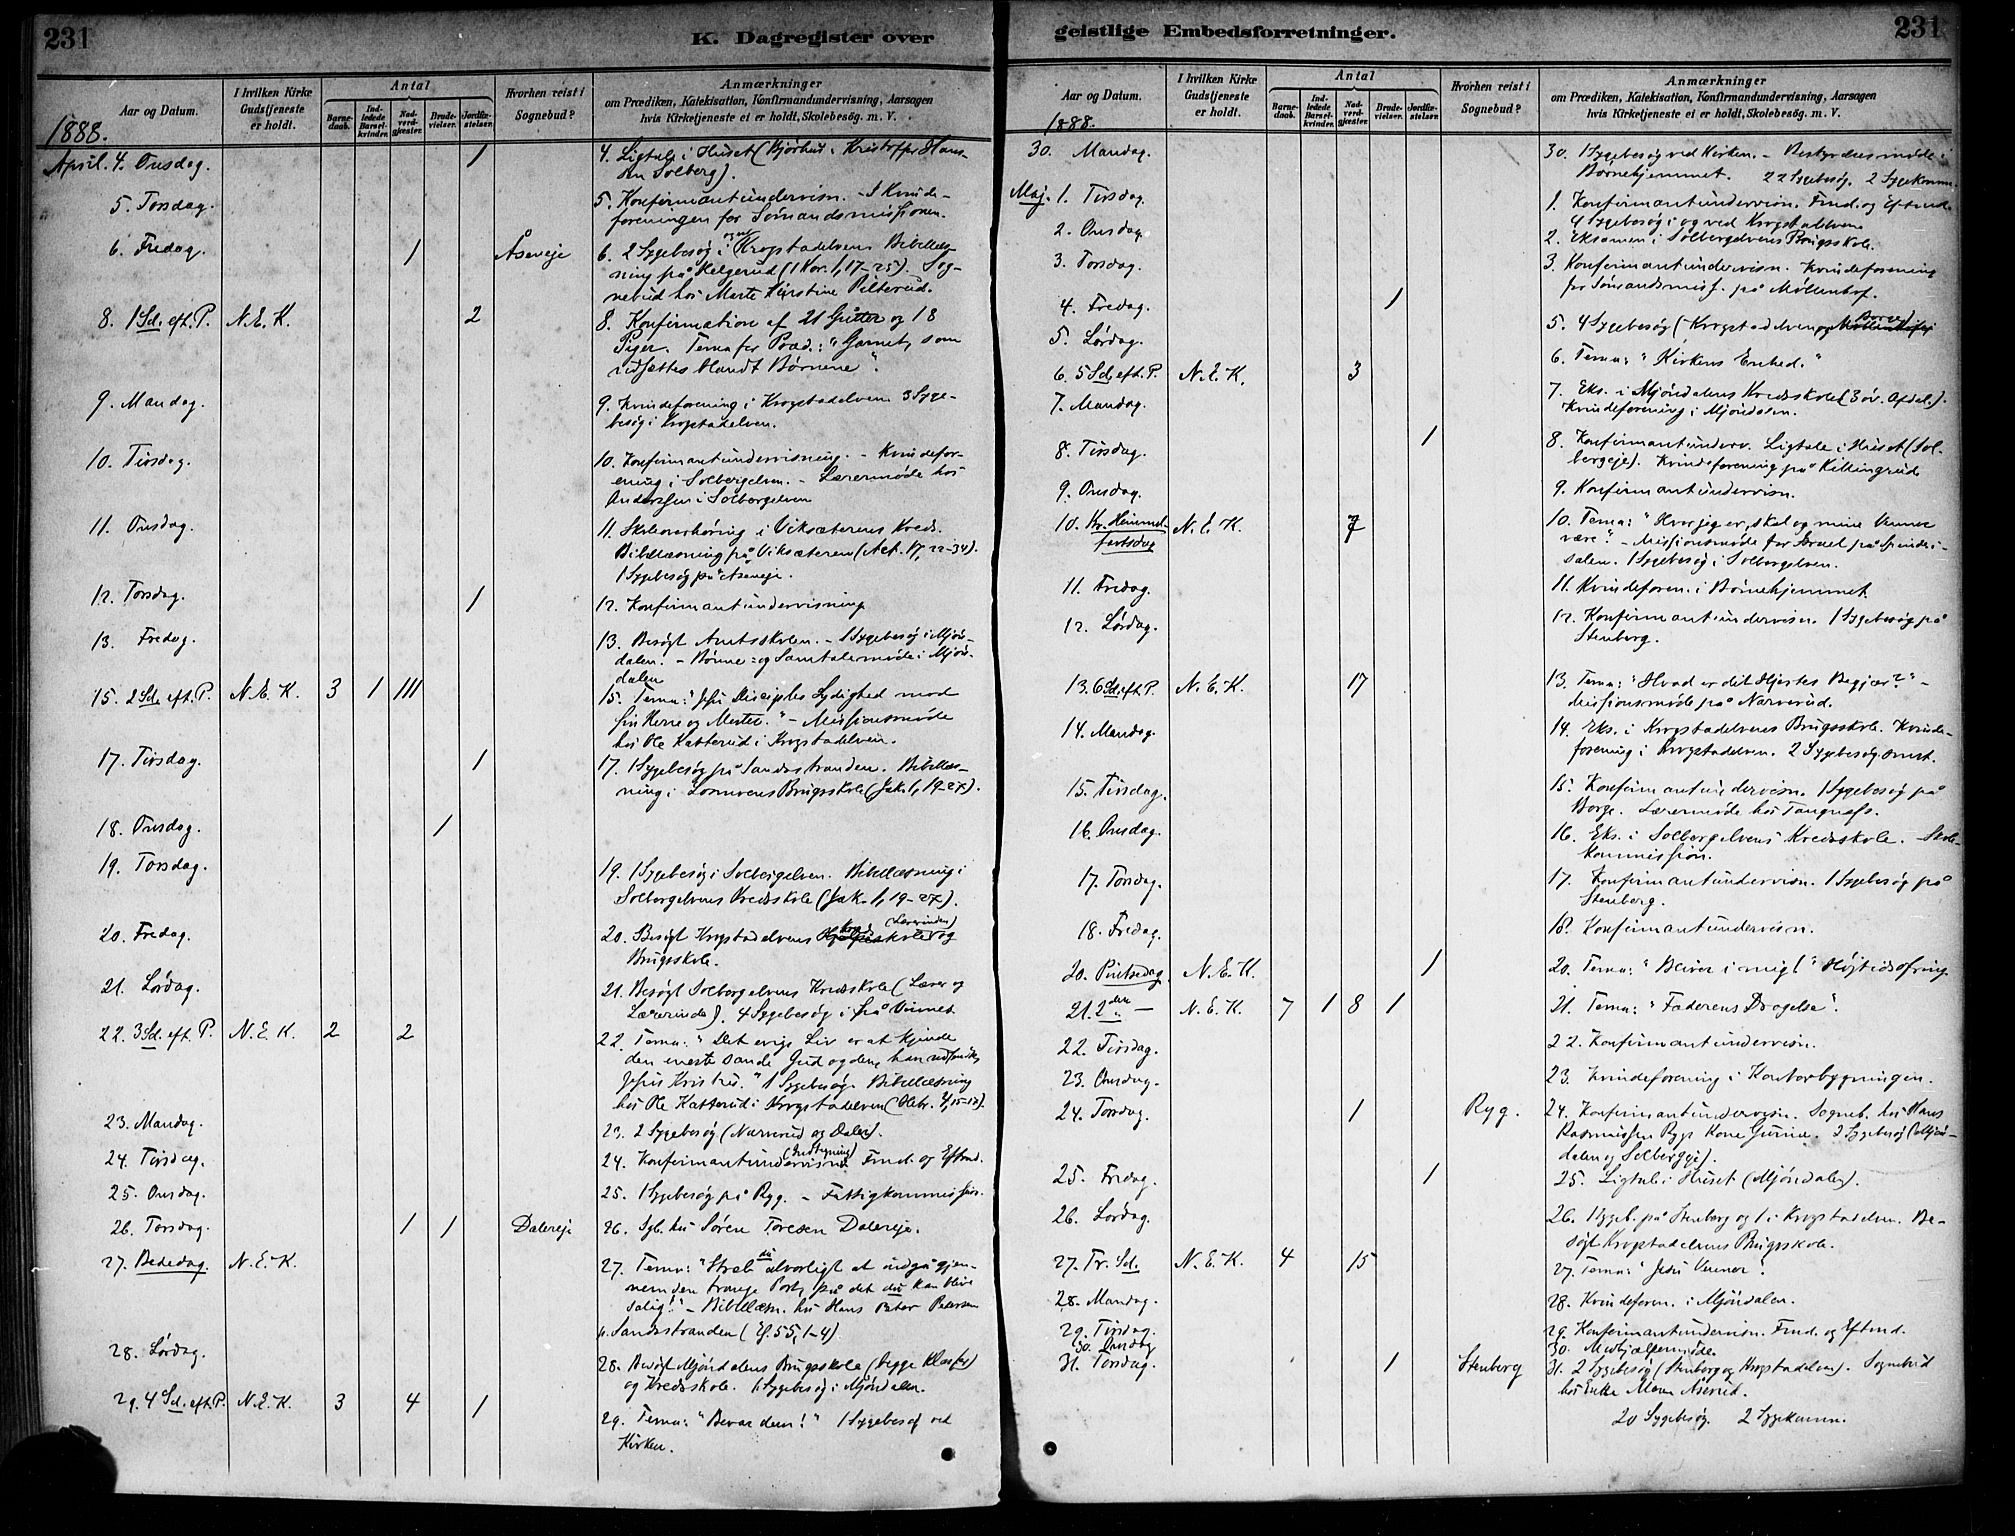 231
K. Dagregister over
Aar og Datum.
I hvilken Kirke Gudstjeneste er holdt.
Antal
Barnedaab.
Indledede Barselkvinder.
Nadverdgjæster.
Brudevielser.
Jordfæstelser.
Hvorhen reist i Sognebud?
Anmærkninger
om Prædiken, Katekisation, Konfirmandundervisning, Aarsagen
hvis Kirketjeneste ei er holdt, Skolebesøg. m. V.
1888.
April. 4. Onsdag. 1 4. Ligtale i Huset (Bjørkhus. Kristoffer Hans-
sen Solberg).
5. Torsdag. 5. Konfirmantundervisn. I Kvinde-
foreningen for Sømandsmissionen.
6. Fredag. 1 Åseveje 6. 2 Sygebesøg i Krogstadelven. Bibellæs-
ning på Helgerud (1 Kor. 1, 17-25). Sog-
nebud hos Marte Kirstine Pilterud.
8. 1 Sd. eft. P. N. E. K. 2 8. Konfirmation af 21 Gutter og 18
Piger. Tema for Præd.: "Garnet, som
udsættes blandt Børnene".
9. Mandag. 9. Kvindeforening i Krogstadelven 3 Syge-
besøg i Krogstadelven.
10. Tirsdag. 10. Konfirmantundervisning. - Kvindefor-
ening i Solbergelven. - Lærermøde hos
Anderssen i Solbergelven
11. Onsdag. 11. Skoleoverhøring i Viksæterens Kreds.
Bibellæsning på Viksæteren (Act. 17, 22-34).
1 Sygebesøg på Åseveje.
12. Torsdag. 1 12. Konfirmantundervisning
13. Fredag. 13. Besøgt Amtsskolen. - 1 Sygebesøg i Mjøn-
dalen. - Bønne- og Samtalemøde i Mjøn-
dalen
15. 2 Sd. eft. P. N. E. K. 3 1 111 15. Tema: "Jesu Disciples Lydighed mod
sin Herre og Mester." - Missionsmøde
hos Ole Katterud i Krogstadelven.
17. Tirsdag. 1 17. 1 Sygebesøg på Sandsstranden. Bibellæs-
ning i Brugsskole (Jak. 1, 19-27).
18. Onsdag. 1
19. Torsdag. 19. 1 Sygebesøg i Solbergelven. Bibellæsning i
Solbergelvens Kredsskole (Jak. 1, 19-27).
20. Fredag. 20. Besøgt Krogstadelvens Kredsskole (Lærerinden) og
Brugsskole.
21. Lørdag. 21. Besøgt Solbergelvens Kredsskole (Lærer og
Lærerinde). 4 Sygebesøg i
22. 3 Sd. eft. P. N. E. K. 2 2 22. Tema: "Det evige Liv er at kjende
den eneste sande Gud og den, han udsendte,
Jesus Kristus." 1 Sygebesøg. Bibellæsning
hos Ole Katterud i Krogstadelven (Hebr. 4, 15-17).
23. Mandag. 23. 2 Sygebesøg (Narverud og Daler).
24. Tirsdag. 24. Konfirmantundervisn. (Indtegning) Frmd. og Eftmd.
25. Onsdag. 25. 1 Sygebesøg på Ryg. - Fattigkommission.
26. Torsdag. 1 1 Dalereje 26. Sgb. hos Søren Toresen Dalereje.
27. Bededag. N. E. K. 27. Tema: "Stræb du alvorligt at indgå gjen-
nem den trange Port, på det du kan blive
salig!" - Bibellæsn. hos Hans Peter Petersen
p. Sandsstranden (Es. 55, 1-4).
28. Lørdag. 28. Besøgt Mjøndalens Brugsskole (begge Klasser)
og Kredsskole. 1 Sygebesøg i Mjøndalen.
29. 4 Sd. eft. P. N. E. K. 3 4 1 29. Tema: "Bevar dem!" 1 Sygebesøg ved
Kirken.
geistlige Embedsforretninger.
231
Aar og Datum.
I hvilken Kirke Gudstjeneste er holdt.
Antal
Barnedaab.
Indledede Barselkvinder.
Nadverdgjæster.
Brudevielser.
Jordfæstelser.
Hvorhen reist i Sognebud?
Anmærkninger
om Prædiken, Katekisation, Konfirmandundervisning, Aarsagen
hvis Kirketjeneste ei er holdt, Skolebesøg. m. V.
1888.
30. Mandag. 30. 1 Sygebesøg ved Kirken. - Bestyrelsesmøde i
Børnehjemmet. 22 Sygebesøg. 2 Sygekomm.
Maj. 1. Tirsdag. 1. Konfirmantundervisn. Frmd. og Eftmd.
4 Sygebesøg i og ved Krogstadelven
2. Onsdag. 2. Eksamen i Solbergelvens Brugsskole.
3. Torsdag. 3. Konfirmantundervisn. Kvindeforening
for Sømandsmiss. på Møllenhof.
4. Fredag. 1
5. Lørdag. 5. 4 Sygebesøg (Krogstadelven og
6. 5 Sd. eft. P. N. E. K. 3 6. Tema: "Kirkens Enhed."
7. Mandag. 7. Eks. i Mjøndalens Kredsskole (3 øv. Afdel.).
Kvindeforening i Mjøndalen.
8. Tirsdag. 1 8. Konfirmantunderv. Ligtale i Huset (Sol-
bergeje). Kvindeforening på Killingrud
9. Onsdag. 9. Konfirmantundervisn.
10. Kr. Himmel-
fartsdag N. E. K. 7 10. Tema: "Hvor jeg er, skal og mine Venner
være". - Missionsmøde for Israel på Spinderi-
salen. 1 Sygebesøg i Solbergelven.
11. Fredag. 11. Kvindeforen. i Børnehjemmet
12. Lørdag. 12. Konfirmantundervisn. 1 Sygebesøg på
Stenberg.
13. 6 Sd. eft. P. N. E. K. 17 13. Tema: "Hvad er dit Hjertes Begjær?" -
Missionsmøde på Narverud.
14. Mandag. 14. Eks. i Krogstadelvens Brugsskole. Kvinde-
forening i Krogstadelven. 2 Sygebesøg
15. Tirsdag. 15. Konfirmantundervisn. 1 Sygebesøg på
Borge. Lærermøde hos
16. Onsdag. 16. Eks. i Solbergelvens Kredsskole. Skole-
kommission.
17. Torsdag. 17. Konfirmantundervisn. 1 Sygebesøg på
Stenberg.
18. Fredag. 18. Konfirmantundervisn.
20. Pintsedag. N. E. K. 1 20. Tema: "Bliver i mig!" Højtidsofring
21. 2den — N. E. K. 7 1 8 1 21. Tema: "Faderens Dragelse".
22. Tirsdag. 22. Konfirmantundervisn.
23. Onsdag. 23. Kvindeforening i Kontorbygningen.
24. Torsdag. 1 Ryg. 24. Konfirmantundervisn. Sogneb. hos Hans
Rasmussen Rygs Kone Gurine. 2 Sygebesøg (Mjøn-
dalen og Solbergeje).
25. Fredag. 1 25. Ligtale i Huset (Mjøndalen).
26. Lørdag. 26. 1 Sygeb. på Stenberg og 1 i Krogstadelven. Be-
søgt Krogstadelvens Brugsskole.
27. Tr. Sd. N. E. K. 4 15 27. Tema: "Jesu Venner".
28. Mandag. 28. Kvindeforen. i Mjøndalen.
29. Tirsdag. 29. Konfirmantundervisn. Frmd. og Eftmd.
30. Onsdag 30. Medhjælpermøde
31. Torsdag. 1 Stenberg 31. 2 Sygebesøg (Stenberg og Krogstadelven). Sognebud
hos Enke Maren Åserud.
20 Sygebesøg. 2 Sygekomm.